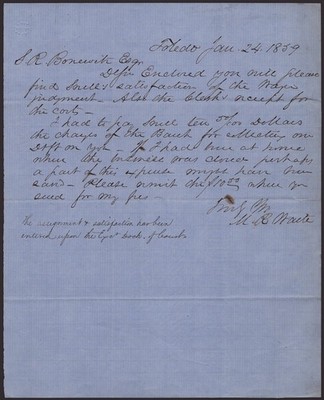 Toledo Jan. 24 1859
S. R. Bonewitz Esq
D Sir Enclosed you will please
find Snell's satisfaction of the
judgment - Also the Clerk's receipt for
the costs -
I had to pay Snell ten Dollars
the charges of the Bank for collecting on
Dft on you - If I had been at home
when the business was closed perhaps
a part of this expense might have been
saved - Please remit the $10.00 when you
send for my fees -
Truly Yrs
M. R. Waite
The assignment & satisfaction has been
entered upon the book of